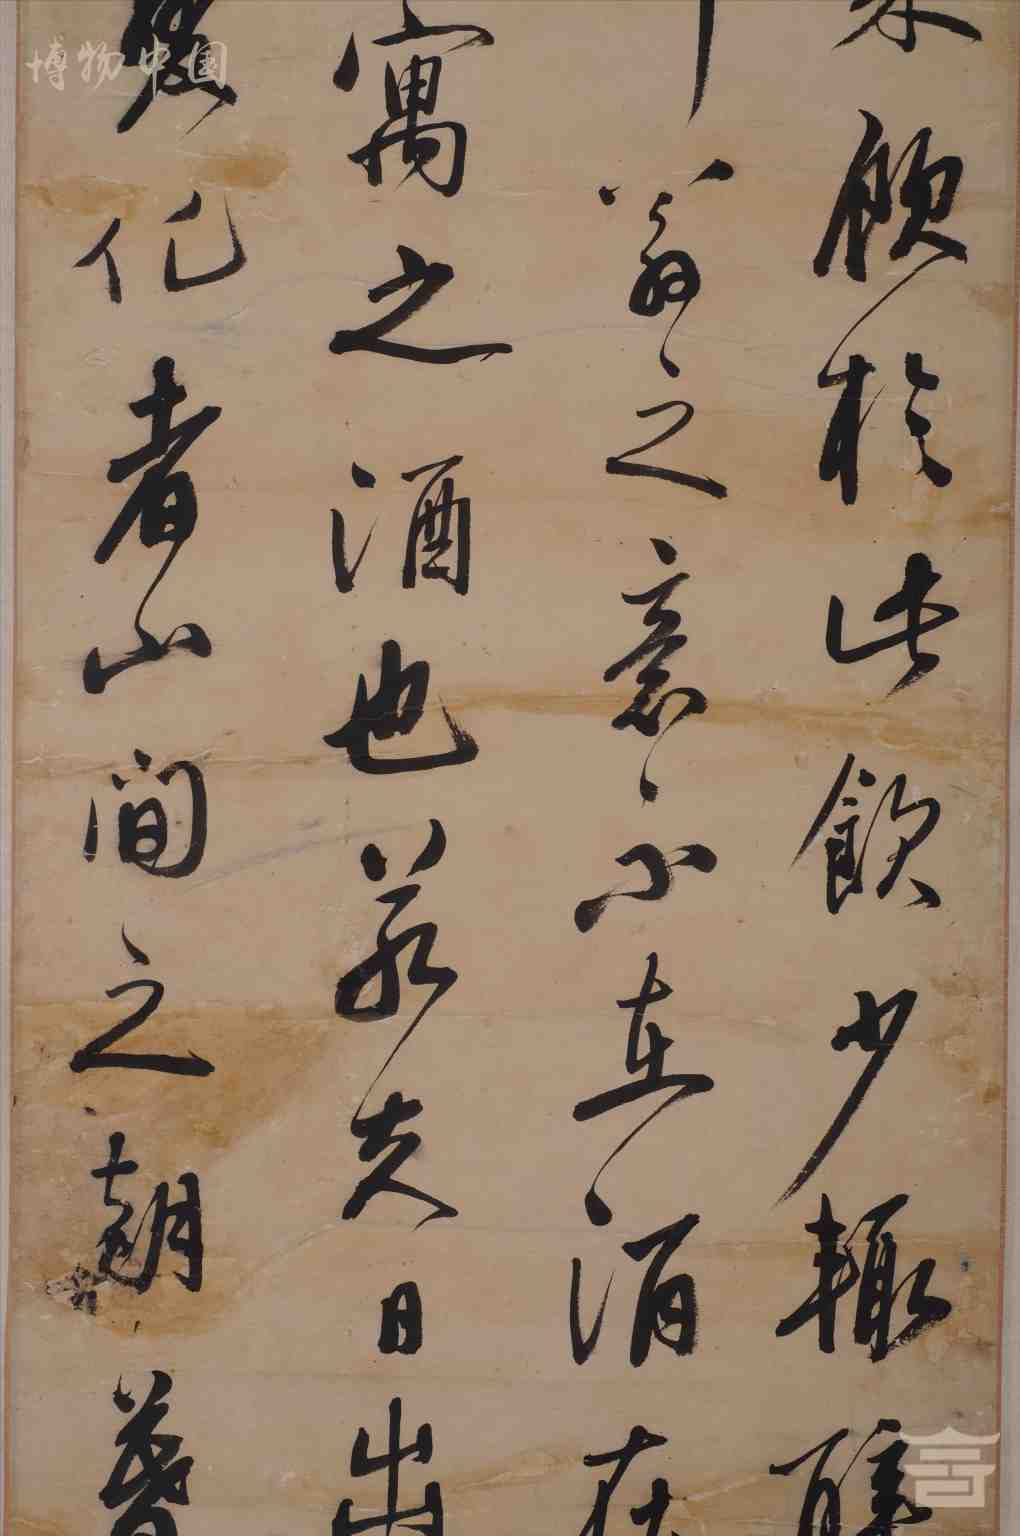 飲於此飲少輒醉
翁之意不在酒在
寓之酒也若夫日出
化者山間之朝暮
博物中国